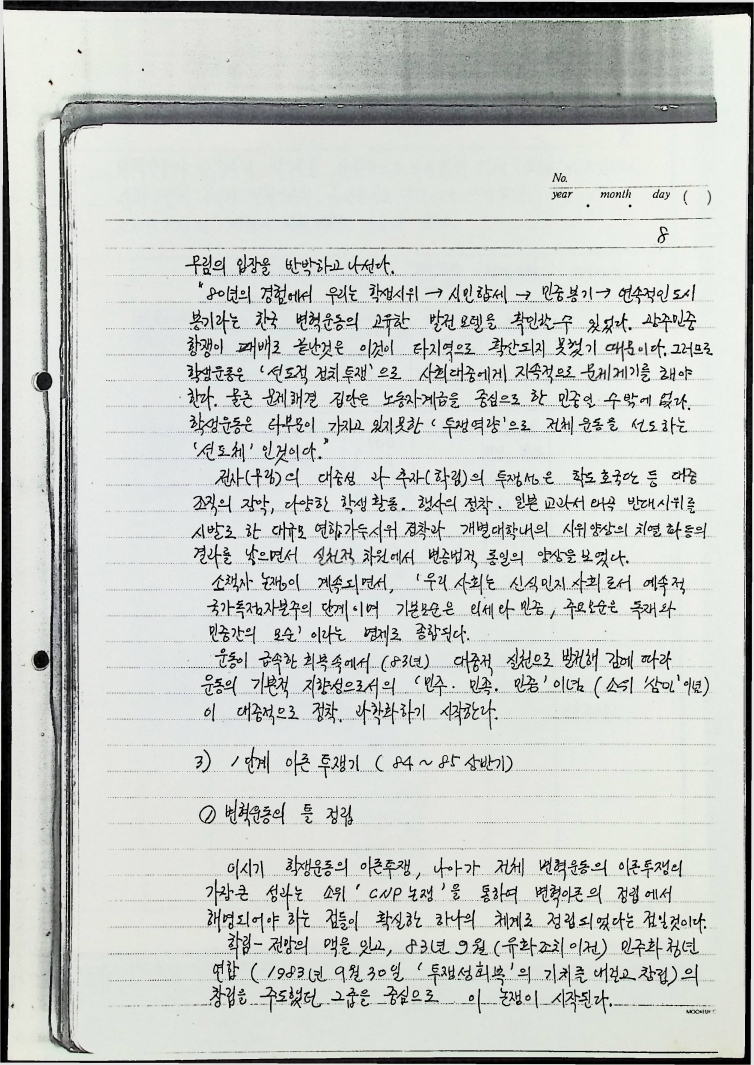 No.
year . month . day ( )
8
무림의 입장을 반박하고 나선다.
"80년의 경험에서 우리는 학생시위 → 시민합세 → 민중봉기 → 연속적인 도시
봉기라는 한국 변혁운동의 고유한 발전모델을 확인할 수 있었다. 광주민중
항쟁이 패배로 끝난것은 이것이 타지역으로 확산되지 못했기 때문이다. 그러므로
학생운동은 '선도적 정치투쟁'으로 사회대중에게 지속적으로 문제제기를 해야
한다. 물론 문제해결 집단은 노동자계급을 중심으로 한 민중일 수밖에 없다.
학생운동은 타부문이 가지고 있지못한 '투쟁역량'으로 전체 운동을 선도하는
'선도체' 인것이다."
전사(무림)의 대중성 과 주자(학림)의 투쟁성은 학도호국단 등 대중
조직의 장악, 다양한 학생활동. 행사의 정착. 일본 교과서 왜곡 반대시위를
시발로 한 대규모 연합가두시위 정착과 개별대학내의 시위양상의 치열화등의
결과를 낳으면서 실천적 차원에서 변증법적 통일의 양상을 보였다.
소책자 논쟁이 계속되면서, '우리 사회는 신식민지 사회로서 예속적
국가독점자본주의 단계이며 기본모순은 외세와 민중, 주요모순은 독재와
민중간의 모순' 이라는 명제로 종합된다.
운동이 급속한 회복속에서 (83년) 대중적 실천으로 발전해 감에 따라
운동의 기본적 지향성으로서의 '민주. 민족. 민중' 이념 (소위 '삼민'이념)
이 대중적으로 정착. 과학화하기 시작한다.
3) 1단계 이론투쟁기 ( 84 ~ 85 상반기)
① 변혁운동의 틀 정립
이시기 학생운동의 이론투쟁, 나아가 전체 변혁운동의 이론투쟁의
가장큰 성과는 소위 ' CNP 논쟁 '을 통하여 변혁이론의 정립에서
해명되어야 하는 점들이 확실한 하나의 체계로 정립되었다는 점일것이다.
학림-전망의 맥을 잇고, 83년 9월 (유화조치이전) 민주화 청년
연합 ( 1983년 9월 30일 '투쟁성회복'의 기치를 내걸고 창립)의
창립을 주도했던 그룹을 중심으로 이 논쟁이 시작된다.